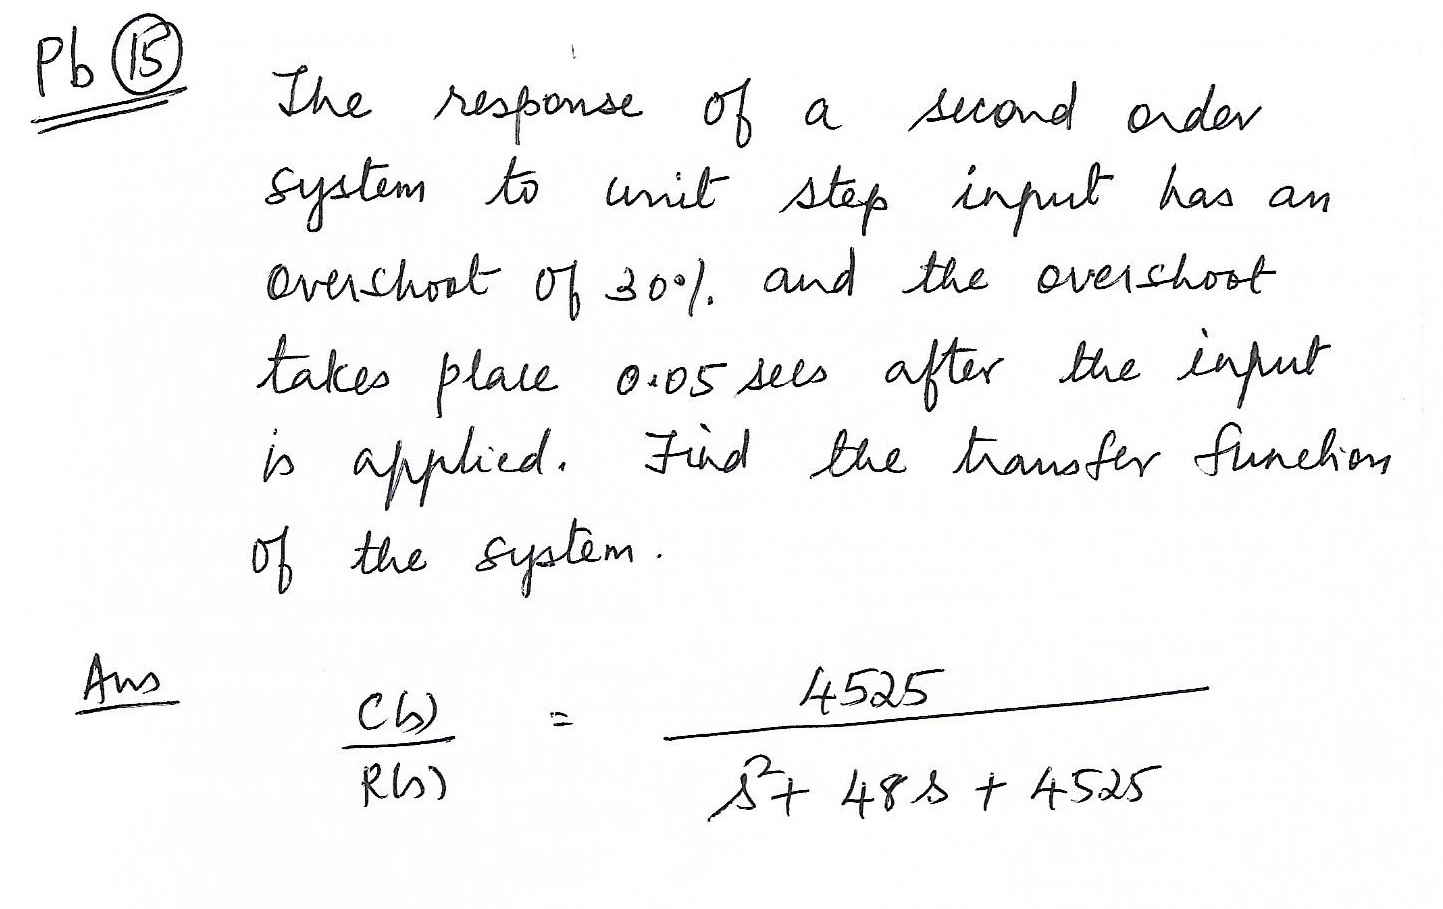 Pb 15
The response of a second order
system to unit step input has an
overshoot of 30% and the overshoot
takes place 0.05 secs after the input
is applied. Find the transfer function
of the system.
Ans
C(s)/R(s) = 4525/(s²+ 48s + 4525)